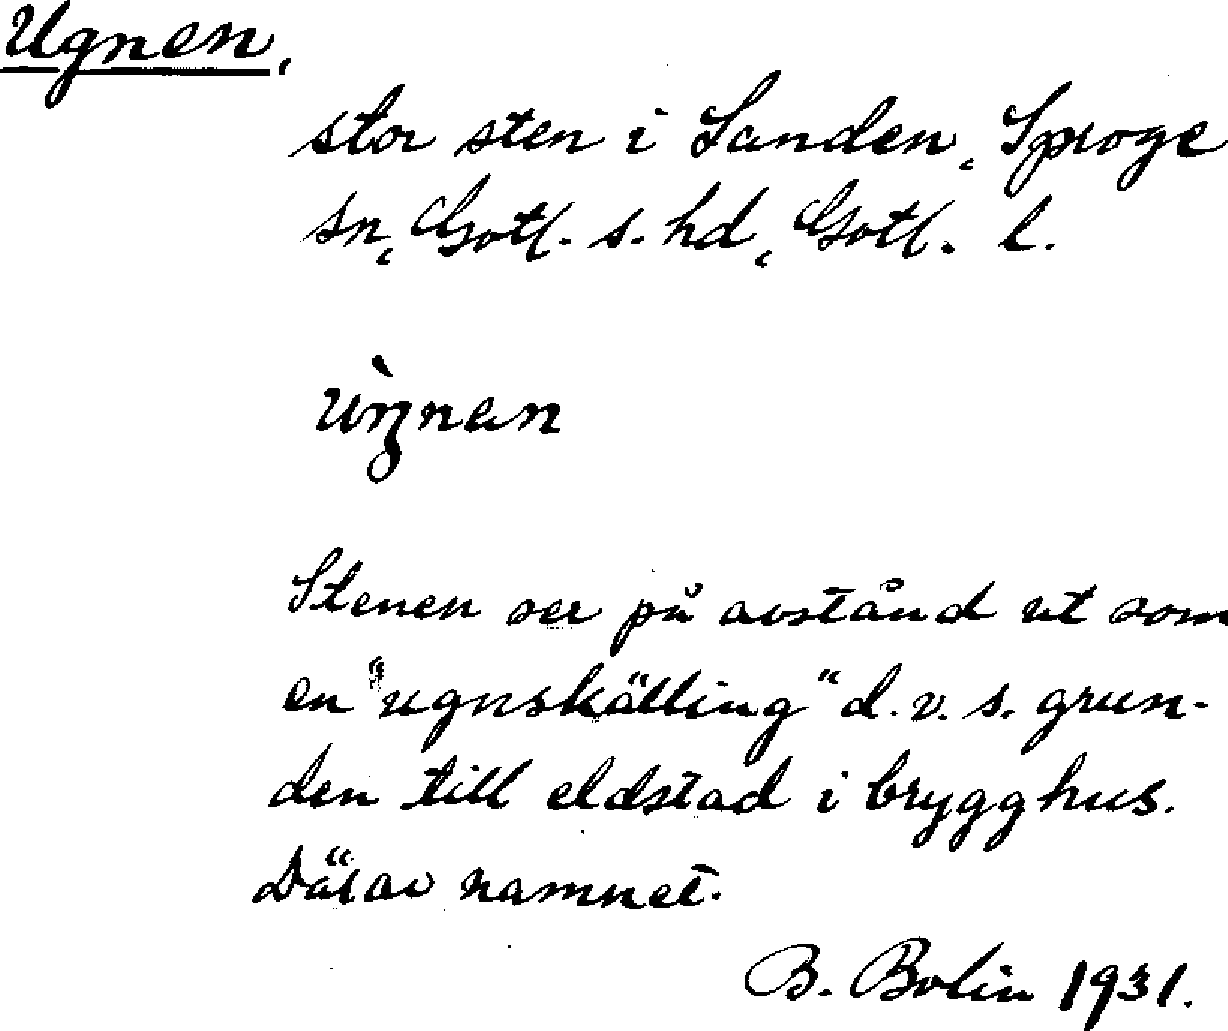 Ugnen,
stor sten i Sanden, Sproge
sn, Gotl. s. hd, Gotl. l.
ùŋnan
Stenen ser på avstånd ut som
en "ugnskälling" d.v.s. grun-
den till eldstad i brygghus.
Därav namnet.
B. Bolin 1931.